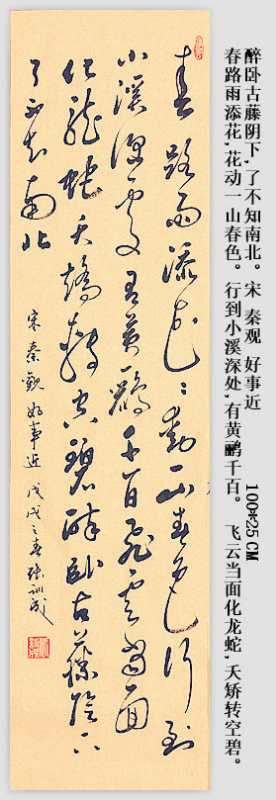 春路雨添花〻動一山春色行到
小溪深處有黄鹂千百飛雲當面
化龍蛇夭矯轉空碧醉卧古藤陰下
了不知南北
宋秦觀好事近 戊戌之春
春路雨添花,花动一山春色。行到小溪深处,有黄鹂千百。 飞云当面化龙蛇,夭矫转空碧。
醉卧古藤阴下,了不知南北。宋 秦观 好事近 100*25CM